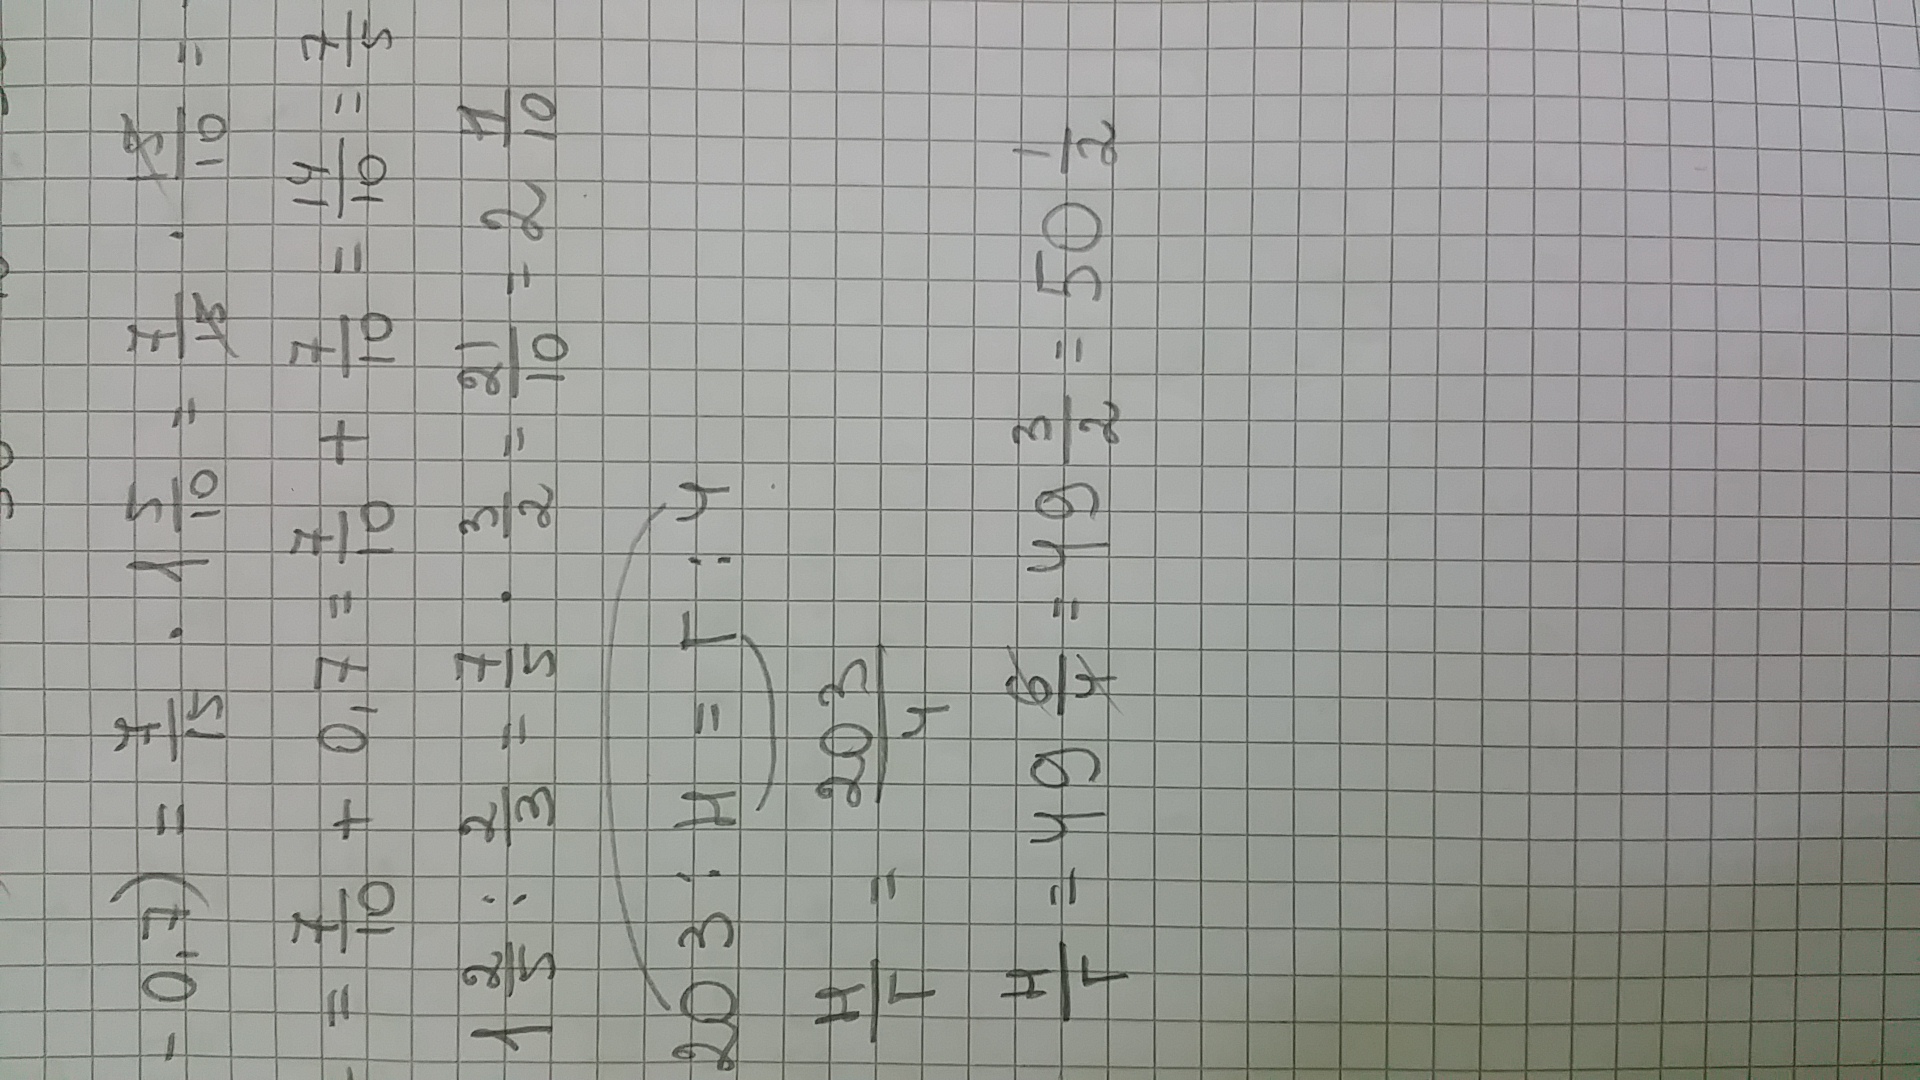 - 0,7) = 7/15 · 1 5/10 = 7/15 · 15/10 =
= 7/10 + 0,7 = 7/10 + 7/10 = 14/10 = 7/5
1 2/5 : 2/3 = 7/5 · 3/2 = 21/10 = 2 1/10
203 : H = Г : 4
H/Г = 203/4
H/Г = 49 6/4 = 49 3/2 = 50 1/2